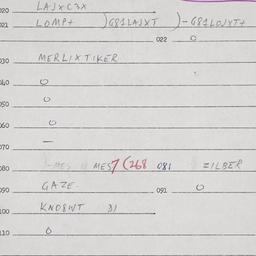 020 LAJXC3X
021 LOMP+ )G81LAJXT )-G81LOJYT+
022 O
030 MERLIXTIKER
040 O
050 O
060 O
070 —
080 MES7 (268 081 =ILBER
090 GAZE. 091 O
100 KND8WT 31
110 O